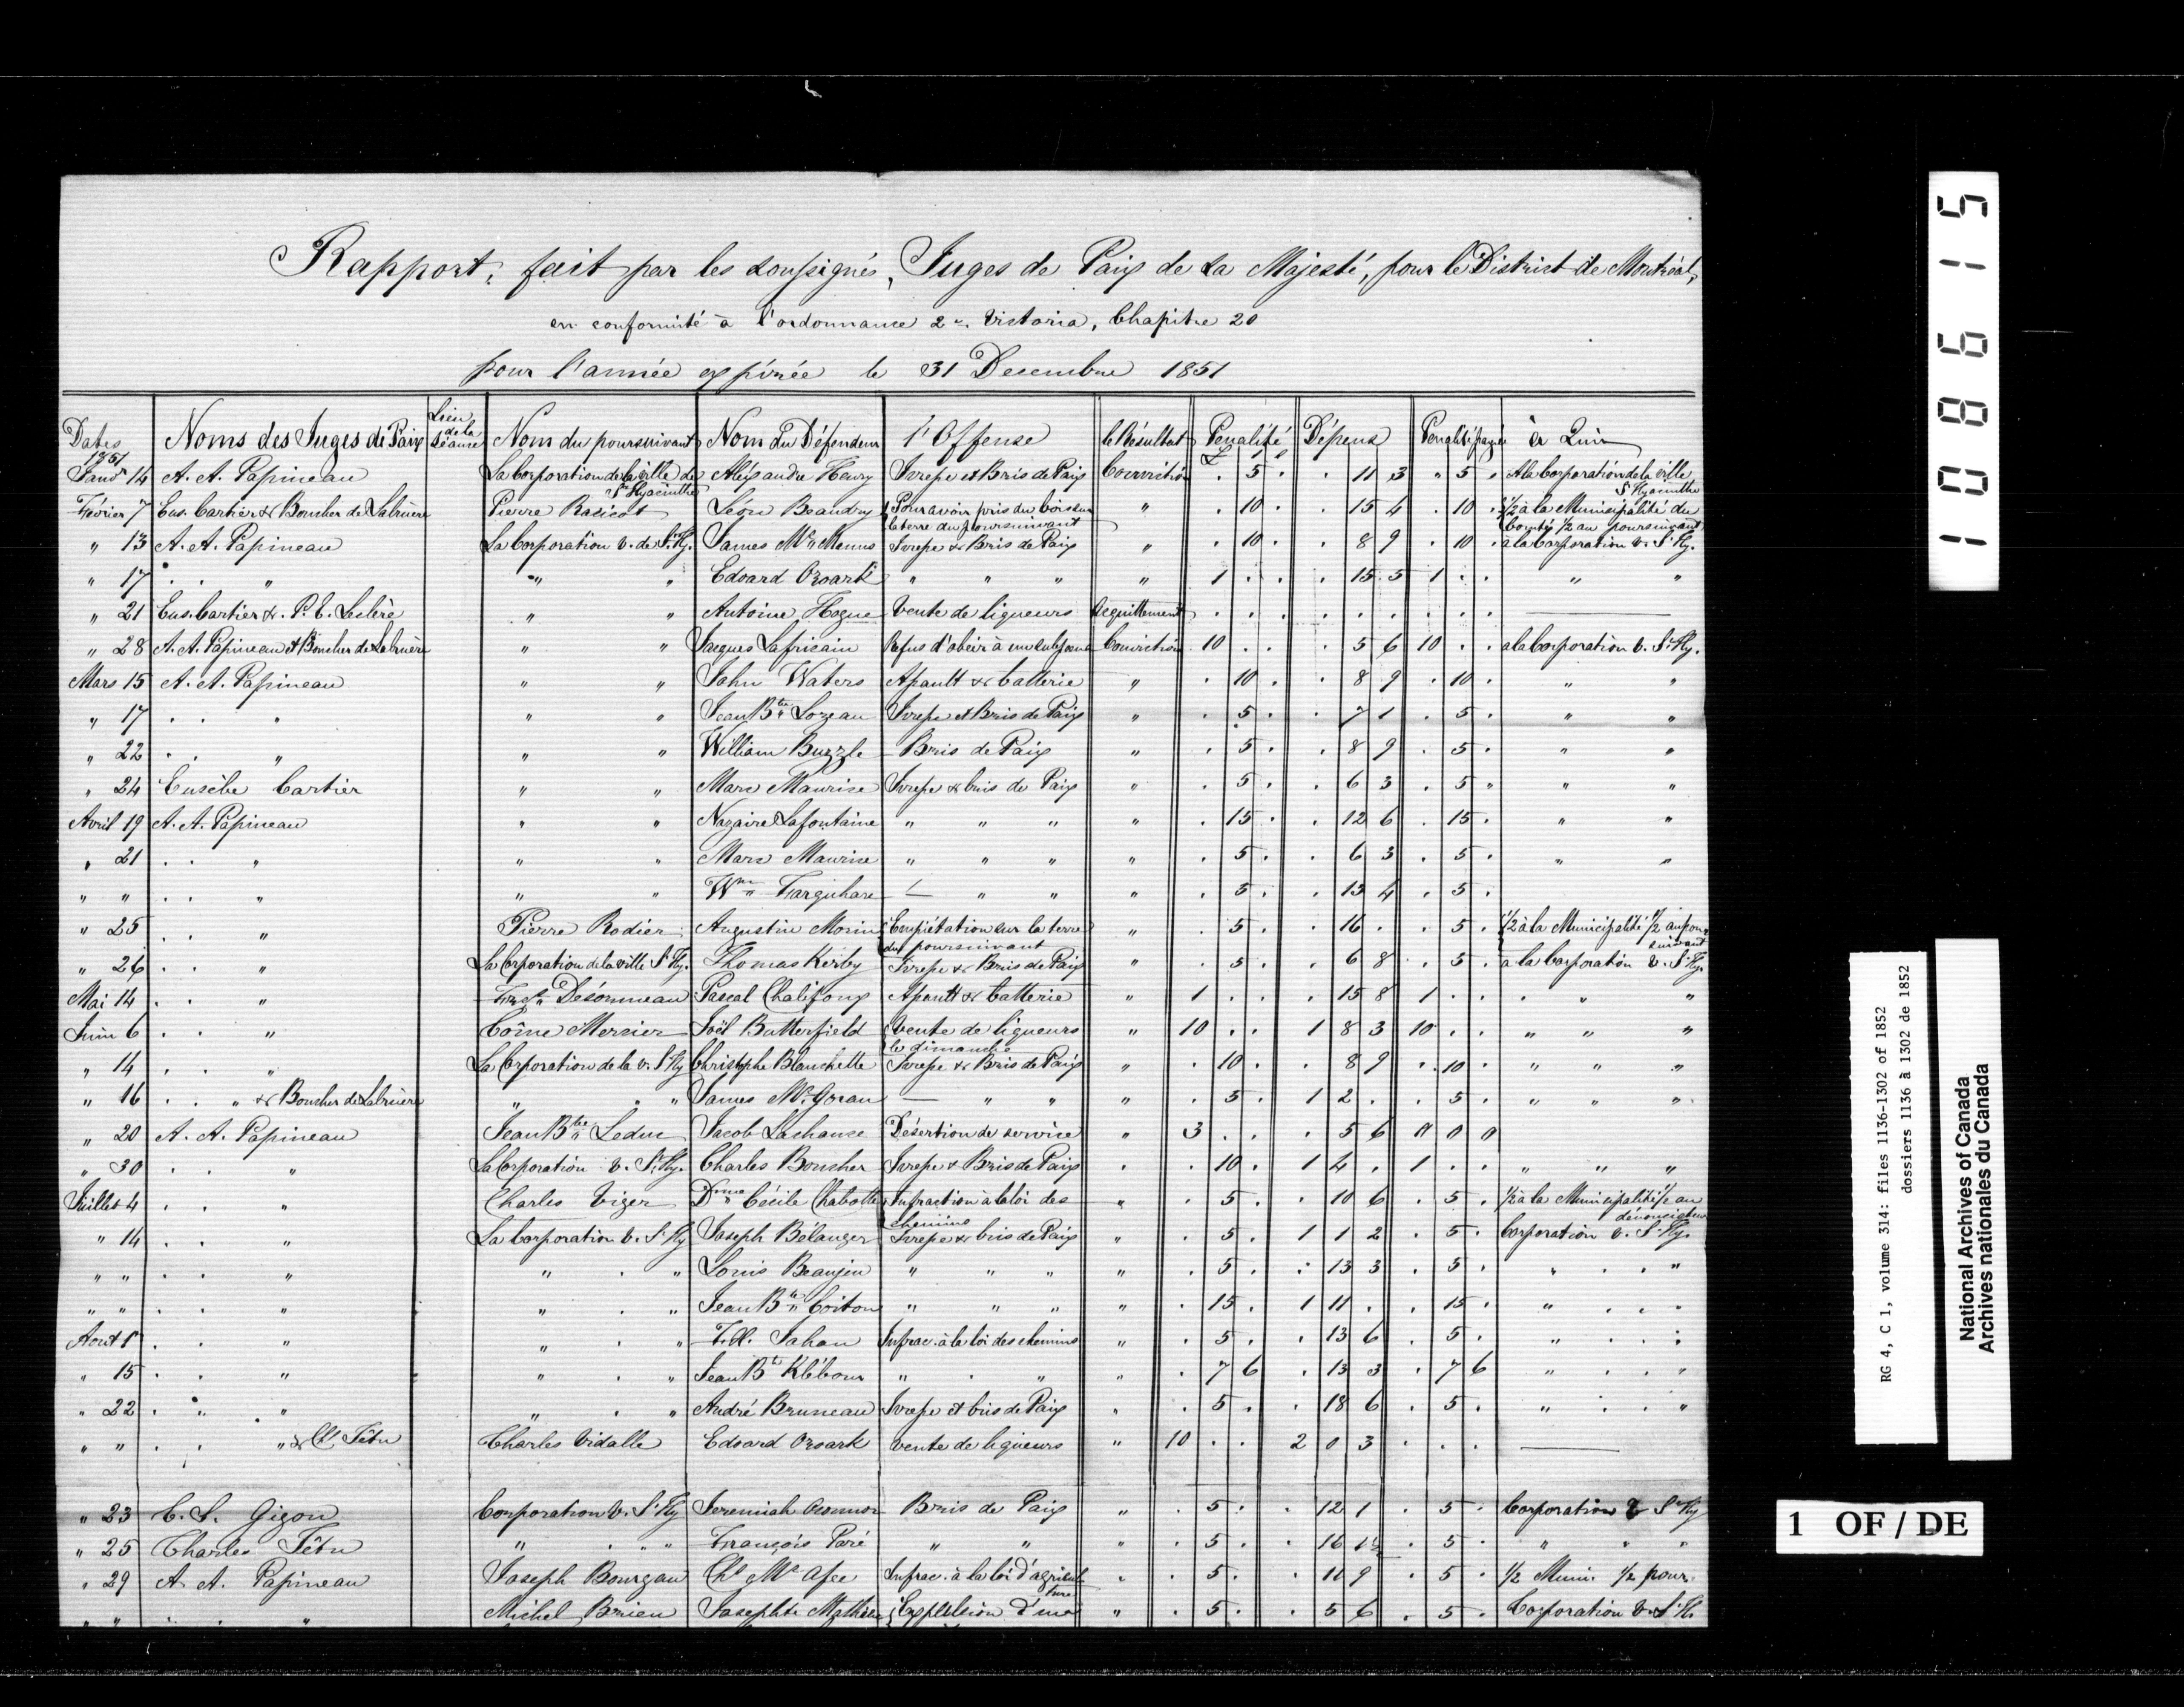 Rapport, fait par les soussignés, Juges de Paix de Sa Majesté, pour le District de Montréal,
en conformité à l'ordonnance 2e Victoria, Chapitre 20
pour l'année expirée le 31 Decembre 1851
Dates 1851 Noms des Juges de Paix Lieu de la Séance Nom du poursuivant Nom du Défendeur l'Offense le Résultat Penalité Dépens Penalité payée à Qui
£ s d
Janvr 14 A. A. Papineau La Corporation de la ville de St Hyacinthe Alexandre Henry Ivresse et Bris de Paix Conviction . 5 . . 11 3 " 5 . A la Corporation de la ville St Hyacinthe
Février 7 Eus. Cartier & Boucher de Labruère Pierre Rasicot Léon Beaudry Pour avoir pris du bois sur la terre du poursuivant " . 10 . . 15 4 . 10 . 1/2 à la Municipalité du Comté 1/2 au poursuivant
" 13 A. A. Papineau La Corporation v. de St Hy. James Mc Manus Ivresse & Bris de Paix " . 10 . . 8 9 . 10 . à la Corporation v. St Hy.
" 17 . . " " " Edouard Oroark " " " " 1 . . . 15 5 1 . . " "
" 21 Eus. Cartier & P. E. Leclère " " Antoine Hogue Vente de liqueurs Acquittement . . . . . . . . .
" 28 A. A. Papineau & Boucher de Labruère " " Jacques Lafricain Refus d'obéir à un subpoena Conviction 10 . . . 5 6 10 . . a la Corporation v. St Hy.
Mars 15 A. A. Papineau " " John Waters Assault & batterie " . 10 . . 8 9 . 10 . " "
" 17 . . " " " Jean Bte Lozeau Ivresse et Bris de Paix " . 5 . . 7 1 . 5 . " "
" 22 . . " " " William Buzzle Bris de Paix " . 5 . . 8 9 . 5 . " "
" 24 Eusèbe Cartier " " Marc Maurice Ivresse & bris de Paix " . 5 . . 6 3 . 5 " " "
Avril 19 A. A. Papineau " " Nazaire Lafontaine " " " " . 15 . . 12 6 . 15 . " "
" 21 . . " " " Marc Maurice " " " " . 5 . . 6 3 . 5 . " "
" " . . " " " Wm Farquhare — " " " . 5 . . 13 4 . 5 .
" 25 . . " Pierre Rodier Augustin Morin Empiétation sur la terre du poursuivant " . 5 . . 16 . . 5 . 1/2 à la Municipalité 1/2 au poursuivant
" 26 . . " La Corporation de la ville St Hy. Thomas Kirby Ivresse & Bris de Paix " . 5 . . 6 8 . 5 . à la Corporation v. St Hy.
Mai 14 . . " Désonneau Pascal Chalifoux Assault & batterie " 1 . . . 15 8 1 . . . " "
Juin 6 . . " Côme Mercier Joël Butterfield Vente de liqueurs le dimanche " 10 . . 1 8 3 10 . . " " "
" 14 . . " La Corporation de la v. St Hy Christophe Blanchette Ivresse & Bris de Paix " . 10 . . 8 9 . 10 . " " "
" 16 . . " & Boucher de Labruère " . " James Mc Goran — " " " . 5 . 1 2 . . 5 . " " "
" 20 A. A. Papineau Jean Bte Leduc Jacob Lachance Désertion de service " 3 . . . 5 6 0 0 0
" 30 . . " La Corporation v. St Hy. Charles Boucher Ivresse & Bris de Paix . . 10 . 1 4 . 1 . . " " "
Juillet 4 . . " Charles Viger Dme Cécile Chabotte Infraction à la loi des chemins " . 5 . . 10 6 . 5 . 1/2 à la Municipalité 1/2 au dénonciateur
" 14 . . " La Corporation v. St Hy Joseph Bélanger Ivresse & bris de Paix " . 5 . 1 1 2 . 5 . Corporation v. St Hy.
" " . . " " . " Louis Beaujeu " " " " . 5 . . 13 3 . 5 . " . . "
" " . . " " . " Jean Bte Coiton " " " " . 15 . 1 11 . . 15 . " . . "
Aout 1r . . " " . " Jahan Infrac. à la loi des chemins " . 5 . . 13 6 . 5 . " . . "
" 15 . . " " . " Jean Bte Klébour " . " " . 7 6 . 13 3 . 7 6 " . . "
" 22 . . " " . " André Bruneau Ivresse et bris de Paix " . 5 . . 18 6 . 5 . " . . "
" " . . " & Ch. Têtu Charles Vidalle Edouard Oroark vente de liqueurs " 10 . . 2 0 3 . . .
" 23 Gigon Corporation v. St Hy Jeremiah Oconnor Bris de Paix " . 5 . . 12 1 . 5 . Corporation v St Hy
" 25 Charles Têtu " . " " François Paré " " " . 5 . . 16 1 1/2 . 5 . " " "
" 29 A. A. Papineau Joseph Bourgau Chs Mc Afee Infrac. à la loi d'agriculture " . 5 . . 11 9 . 5 . 1/2 Muni. 1/2 pour.
" " . . " Michel Brien Josephte Mathieu Expulsion d'une " . 5 . . 5 6 . 5 . Corporation v. St H.
108615
RG 4, C 1, volume 314: files 1136-1302 of 1852
dossiers 1136 à 1302 de 1852
National Archives of Canada
Archives nationales du Canada
1 OF / DE